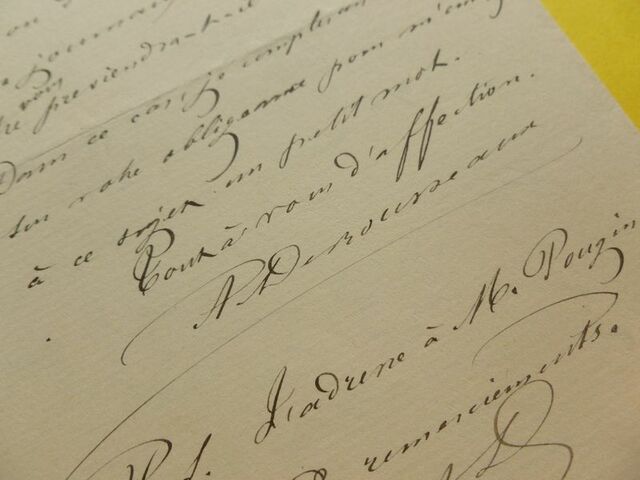 journal
vous
préviendra-t-il
Dans ce cas, je compterai
sur votre obligeance pour m'envoy
à ce sujet un petit mot.
Tout à vous d'affection.
A Desrousseaux
P. S. J'adresse à M. Pougin
remerciements.